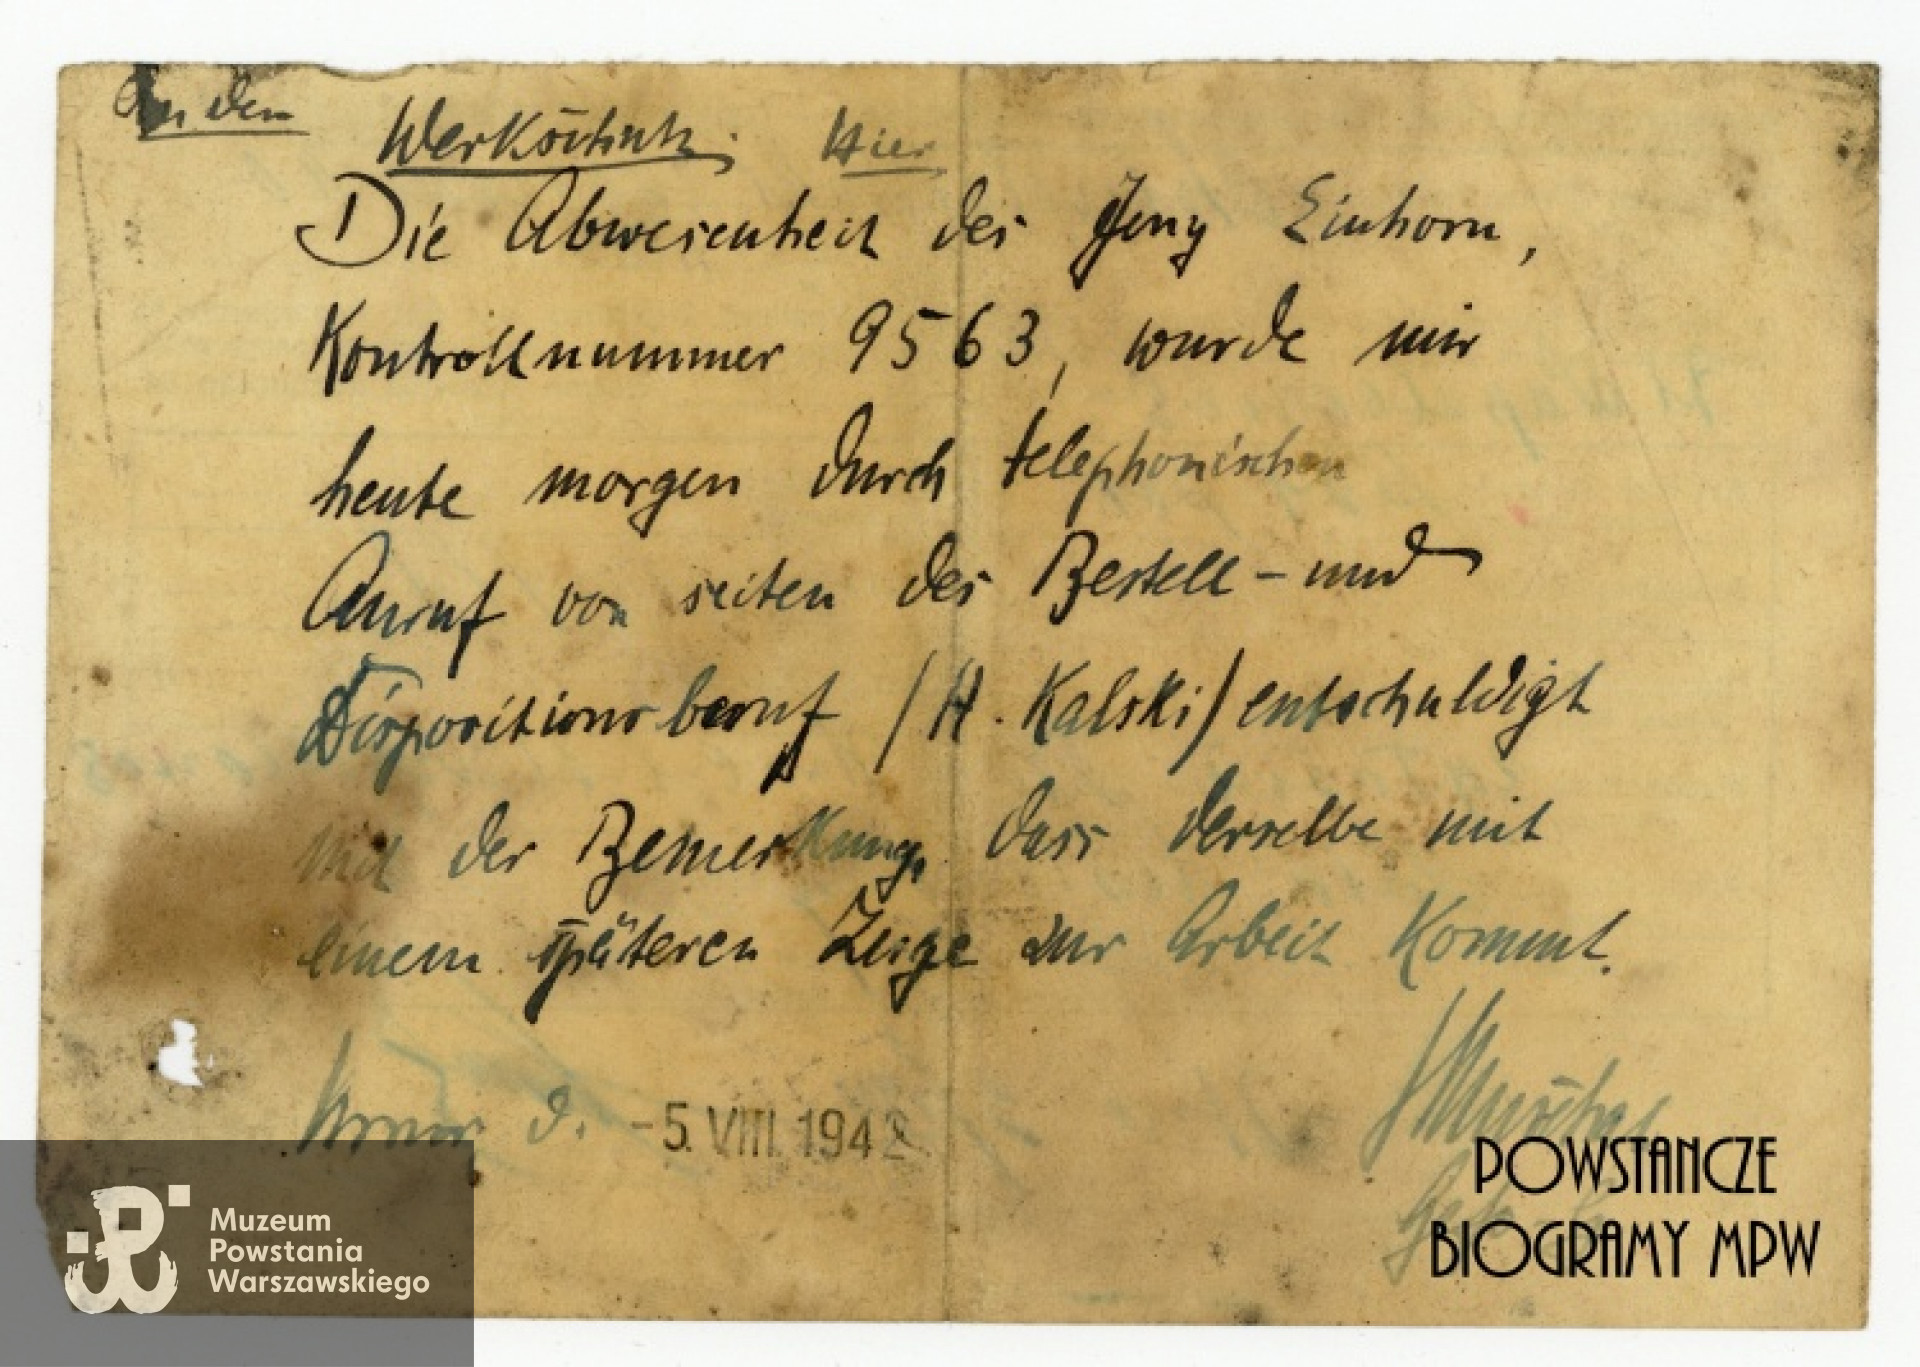 An den
Werkschutz, Hier
Die Abwesenheit des Jeny Einhorn,
Kontrollnummer 9563, wurde mir
heute morgen durch telephonischen
Anruf von seiten des Bestell- und
Dispositionsberuf /H. Kalski/ entschuldigt
mit der Bemerkung, dass derselbe mit
einem späteren Zuge zur Arbeit kommt.
d. -5. VIII. 1942
Muzeum
Powstania
Warszawskiego
POWSTANCZE
BIOGRAMY MPW